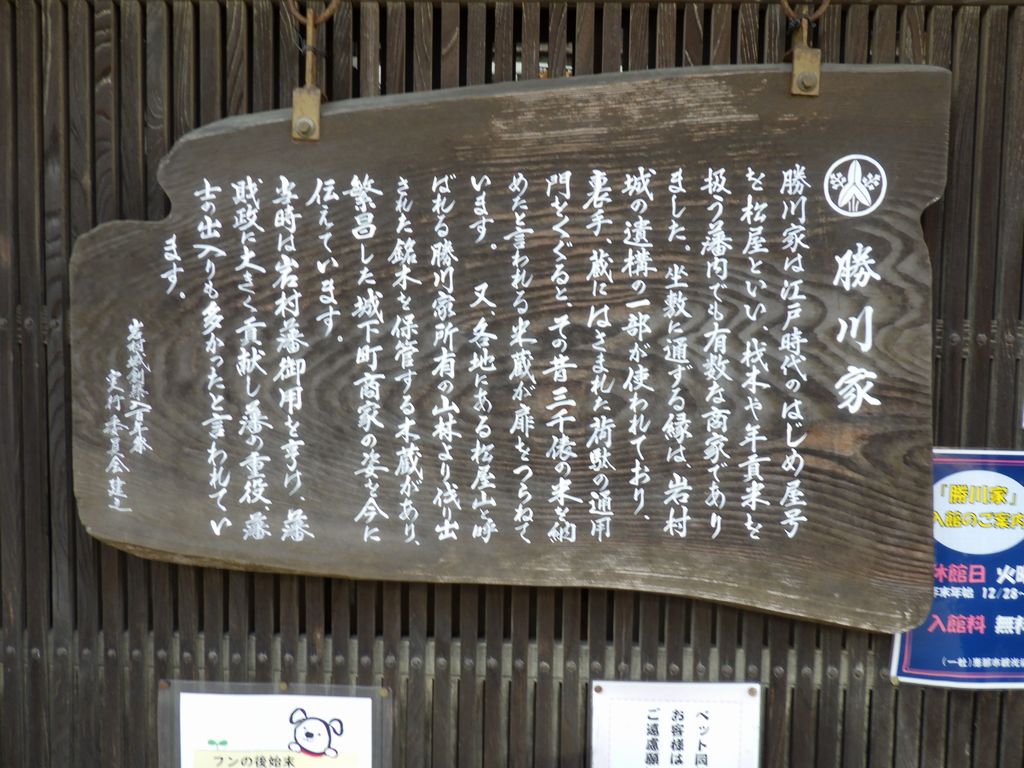 勝川家
勝川家は江戸時代のはじめ屋号
を松屋といい、材木や年貢米を
扱う藩内でも有数な商家であり
ました。坐敷に通ずる縁は、岩村
城の遺構の一部が使われており、
裏手、蔵にはさまれた荷駄の通用
門をくぐると、その昔三千俵の米を納
めたと言われる米蔵が扉をつらねて
います。又、各地にある松屋山と呼
ばれる勝川家所有の山林より伐り出
された銘木を保管する木蔵があり、
繁昌した城下町商家の姿を今に
伝えています。
当時は岩村藩御用を享け、藩
財政に大きく貢献し藩の重役、藩
士の出入りも多かったと言われてい
ます。
実行委員会建之
「勝川家」
入館のご案内
休館日 火
年末年始 12/28~
入館料 無料
フンの後始末
ペット同
お客様は
ご遠慮願